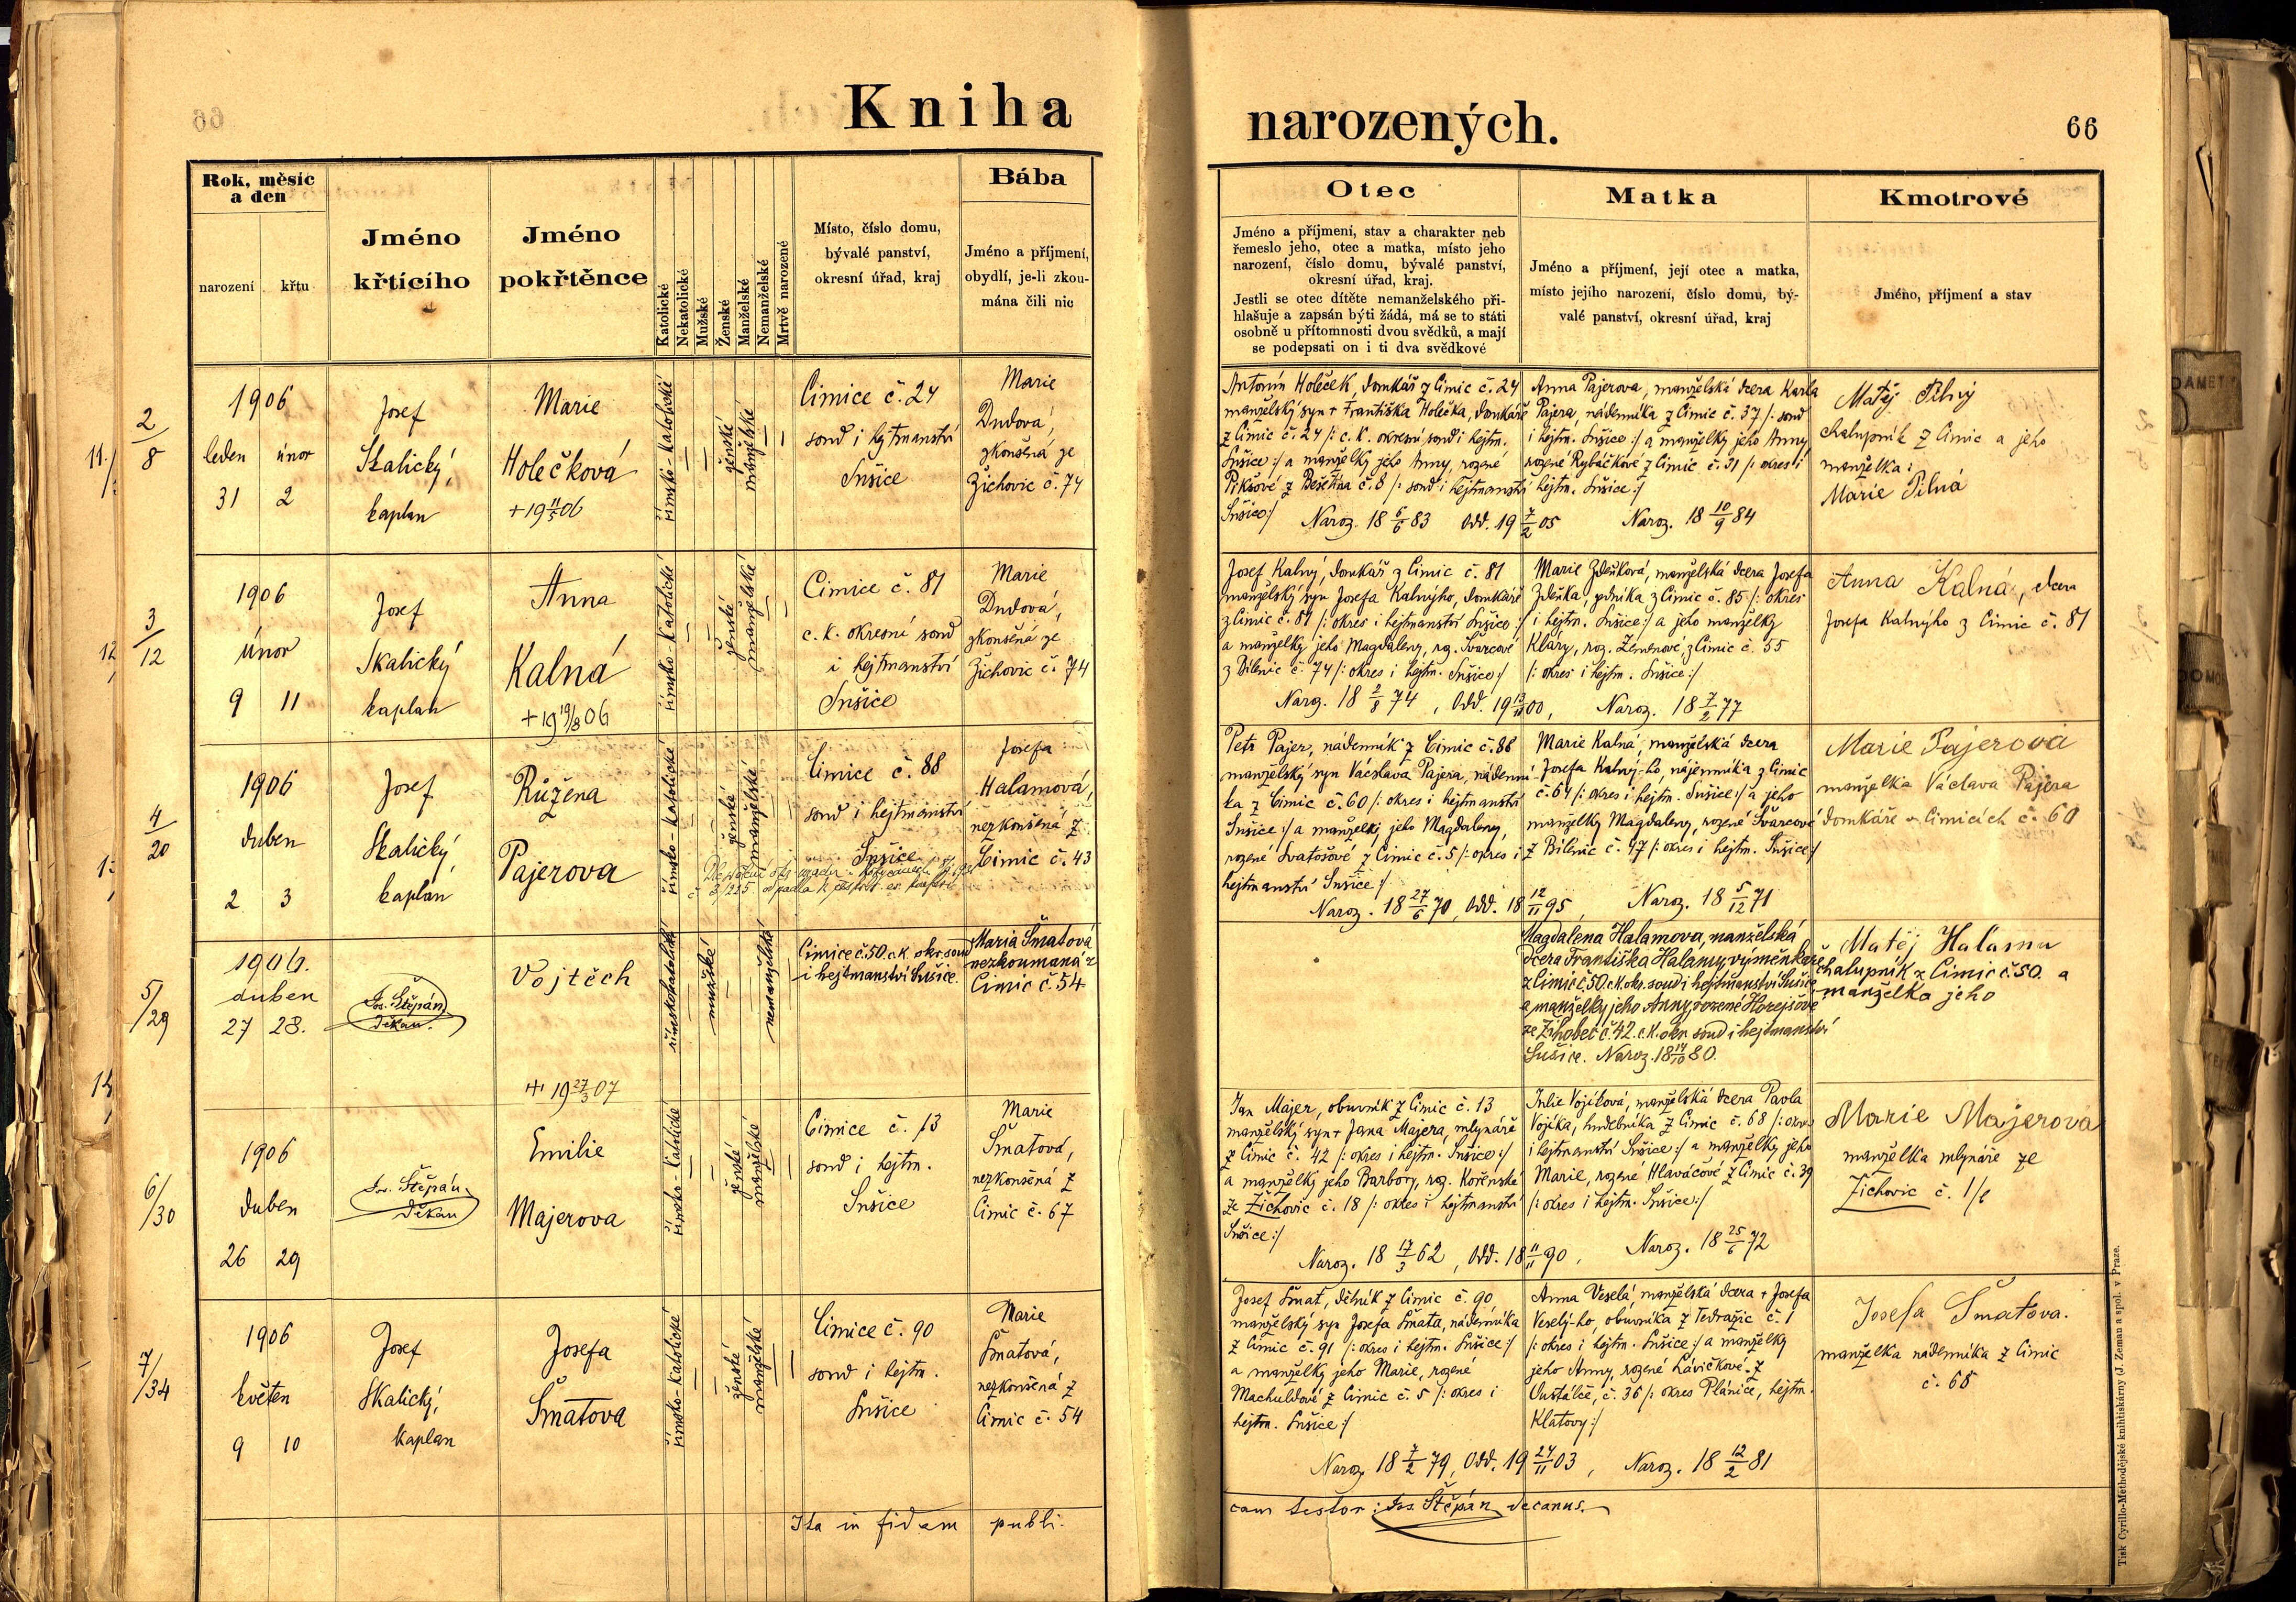 Kniha
narozených.
66
Rok, měsíc
a den
narození
křtu
Jméno
křtícího
Jméno
pokřtěnce
Katolické
Nekatolické
Mužské
Ženské
Manželské
Nemanželské
Mrtvě narozené
Místo, číslo domu,
bývalé panství,
okresní úřad, kraj
Bába
Jméno a příjmení,
obydlí, je-li zkou-
mána čili nic
Otec
Jméno a příjmení, stav a charakter neb
řemeslo jeho, otec a matka, místo jeho
narození, číslo domu, bývalé panství,
okresní úřad, kraj.
Jestli se otec dítěte nemanželského při-
hlašuje a zapsán býti žádá, má se to státi
osobně u přítomnosti dvou svědků, a mají
se podepsati on i ti dva svědkové
Matka
Jméno a příjmení, její otec a matka,
místo jejího narození, číslo domu, bý-
valé panství, okresní úřad, kraj
Kmotrové
Jméno, příjmení a stav
11.
2/8
1906
leden únor
31 2
Josef
Skalický,
kaplan
Marie
Holečková
+ 19 11/5 06
římsko-katolické
ženské
manželské
Čimice č. 24
soud i hejtmanství
Sušice
Marie
Dudová,
zkoušená ze
Žichovic č. 74
Antonín Holeček, domkář z Čimic č. 24
manželský syn + Františka Holečka, domkáře
z Čimic č. 24 /: c. k. okresní soud i hejtm.
Sušice :/ a manželky jeho Anny, rozené
Pikšové z Bešetína č. 8 /: soud i hejtmanství
Sušice :/
Naroz. 18 6/6 83 Odd. 19 7/2 05
Anna Pajerova, manželská dcera Karla
Pajera, nádenníka z Čimic č. 37 /: soud
i hejtm. Sušice :/ a manželky jeho Anny
rozené Rybáčkové z Čimic č. 31 /: okres i
hejtm. Sušice :/
Naroz. 18 10/9 84
Matěj Pilný
chalupník z Čimic a jeho
manželka:
Marie Pilná
12
3/12
1906
únor
9 11
Josef
Skalický
kaplan
Anna
Kalná
+ 19 19/8 06
římsko-katolické
ženské
manželské
Čimice č. 81
c. k. okresní soud
i hejtmanství
Sušice
Marie
Dudová,
zkoušená ze
Žichovic č. 74
Josef Kalný, domkář z Čimic č. 81
manželský syn Josefa Kalnýho, domkáře
z Čimic č. 81 /: okres i hejtmanství Sušice :/
a manželky jeho Magdaleny, roz. Švarcové
z Bílenic č. 74 /: okres i hejtm. Sušice :/
Naroz. 18 2/8 74, Odd. 19 13/11 00,
Marie Zdeňková, manželská dcera Josefa
Zdeňka, zedníka z Čimic č. 85 /: okres
i hejtm. Sušice :/ a jeho manželky
Kláry, roz. Zemenové, z Čimic č. 55
/: okres i hejtm. Sušice :/
Naroz. 18 7/2 77
Anna Kalná, dcera
Josefa Kalnýho z Čimic č. 81
4/20
1906
duben
2 3
Josef
Skalický,
kaplan
Růžena
Pajerova
římsko-katolické
ženské
manželské
Čimice č. 88
soud i hejtmanství
Sušice
Josefa
Halamová,
nezkoušená z
Čimic č. 43
Petr Pajer, nádenník z Čimic č. 88
manželský syn Václava Pajera, nádenní-
ka z Čimic č. 60 /: okres i hejtmanství
Sušice :/ a manželky jeho Magdaleny,
rozené Svatošové z Čimic č. 5 /: okres i
hejtmanství Sušice :/
Naroz. 18 27/6 70, Odd. 18 12/11 95,
Marie Kalná, manželská dcera
Josefa Kalný-ho, nájemníka z Čimic
č. 64 /: okres i hejtm. Sušice :/ a jeho
manželky Magdaleny, rozené Švarcové
z Bílenic č. 47 /: okres i hejtm. Sušice :/
Naroz. 18 5/12 71
Marie Pajerová
manželka Václava Pajera
domkáře v Čimicích č. 60
5/29
1906.
duben
27 28.
Jos. Štěpán
děkan.
Vojtěch
+ 19 27/3 07
římskokatolické
mužské
nemanželské
Čimice č. 50. c.k. okr. soud
i hejtmanství Sušice.
Maria Šmatová
nezkoumaná z
Čimic č. 54
Magdalena Halamova, manželská
dcera Františka Halamy, výměnkáře
z Čimic č. 50. c.k. okr. soud i hejtmanství Sušice
a manželky jeho Anny, rozené Horejšové
ze Žihobec č. 42. c.k. okr. soud i hejtmanství
Sušice. Naroz. 18 17/10 80.
Matěj Halama
chalupník z Čimic č. 50. a
manželka jeho
6/30
1906
duben
26 29
Jos. Štěpán
děkan
Emilie
Majerova
římsko-katolické
ženské
manželské
Čimice č. 13
soud i hejtm.
Sušice
Marie
Šmatová,
nezkoušená z
Čimic č. 67
Jan Majer, obuvník z Čimic č. 13
manželský syn + Jana Majera, mlynáře
z Čimic č. 42 /: okres i hejtm. Sušice :/
a manželky jeho Barbory, roz. Kořenské
ze Žichovic č. 18 /: okres i hejtmanství
Sušice :/
Naroz. 18 17/3 62, Odd. 18 11/11 90,
Julie Vojíková, manželská dcera Pavla
Vojíka, hudebníka z Čimic č. 68 /: okres
i hejtmanství Sušice :/ a manželky jeho
Marie, rozené Hlaváčové z Čimic č. 39
/: okres i hejtm. Sušice :/
Naroz. 18 25/6 72
Marie Majerova
manželka mlynáře ze
Žichovic č.
7/34
1906
květen
9 10
Josef
Skalický,
kaplan
Josefa
Šmatova
římsko-katolické
ženské
manželské
Čimice č. 90
soud i hejtm.
Sušice
Marie
Šmatová,
nezkoušená z
Čimic č. 54
Josef Šmat, dělník z Čimic č. 90
manželský syn Josefa Šmata, nádenníka
z Čimic č. 91 /: okres i hejtm. Sušice :/
a manželky jeho Marie, rozené
Machuldové z Čimic č. 5 /: okres i
hejtm. Sušice :/
Naroz. 18 7/2 79, Odd. 19 24/11 03,
Anna Veselá, manželská dcera + Josefa
Veselý-ho, obuvníka z Tedražic č. 1
/: okres i hejtm. Sušice :/ a manželky
jeho Anny, rozené Lávičkové z
č. 36 /: okres Plánice, hejtm.
Klatovy :/
Naroz. 18 12/2 81
Josefa Šmatova.
manželka nádenníka z Čimic
č. 68
Ita in fidem publi-
cam testor: Jos. Štěpán decanus.
Tisk Cyrillo-Methodějské knihtiskárny (J. Zeman a spol. v Praze.